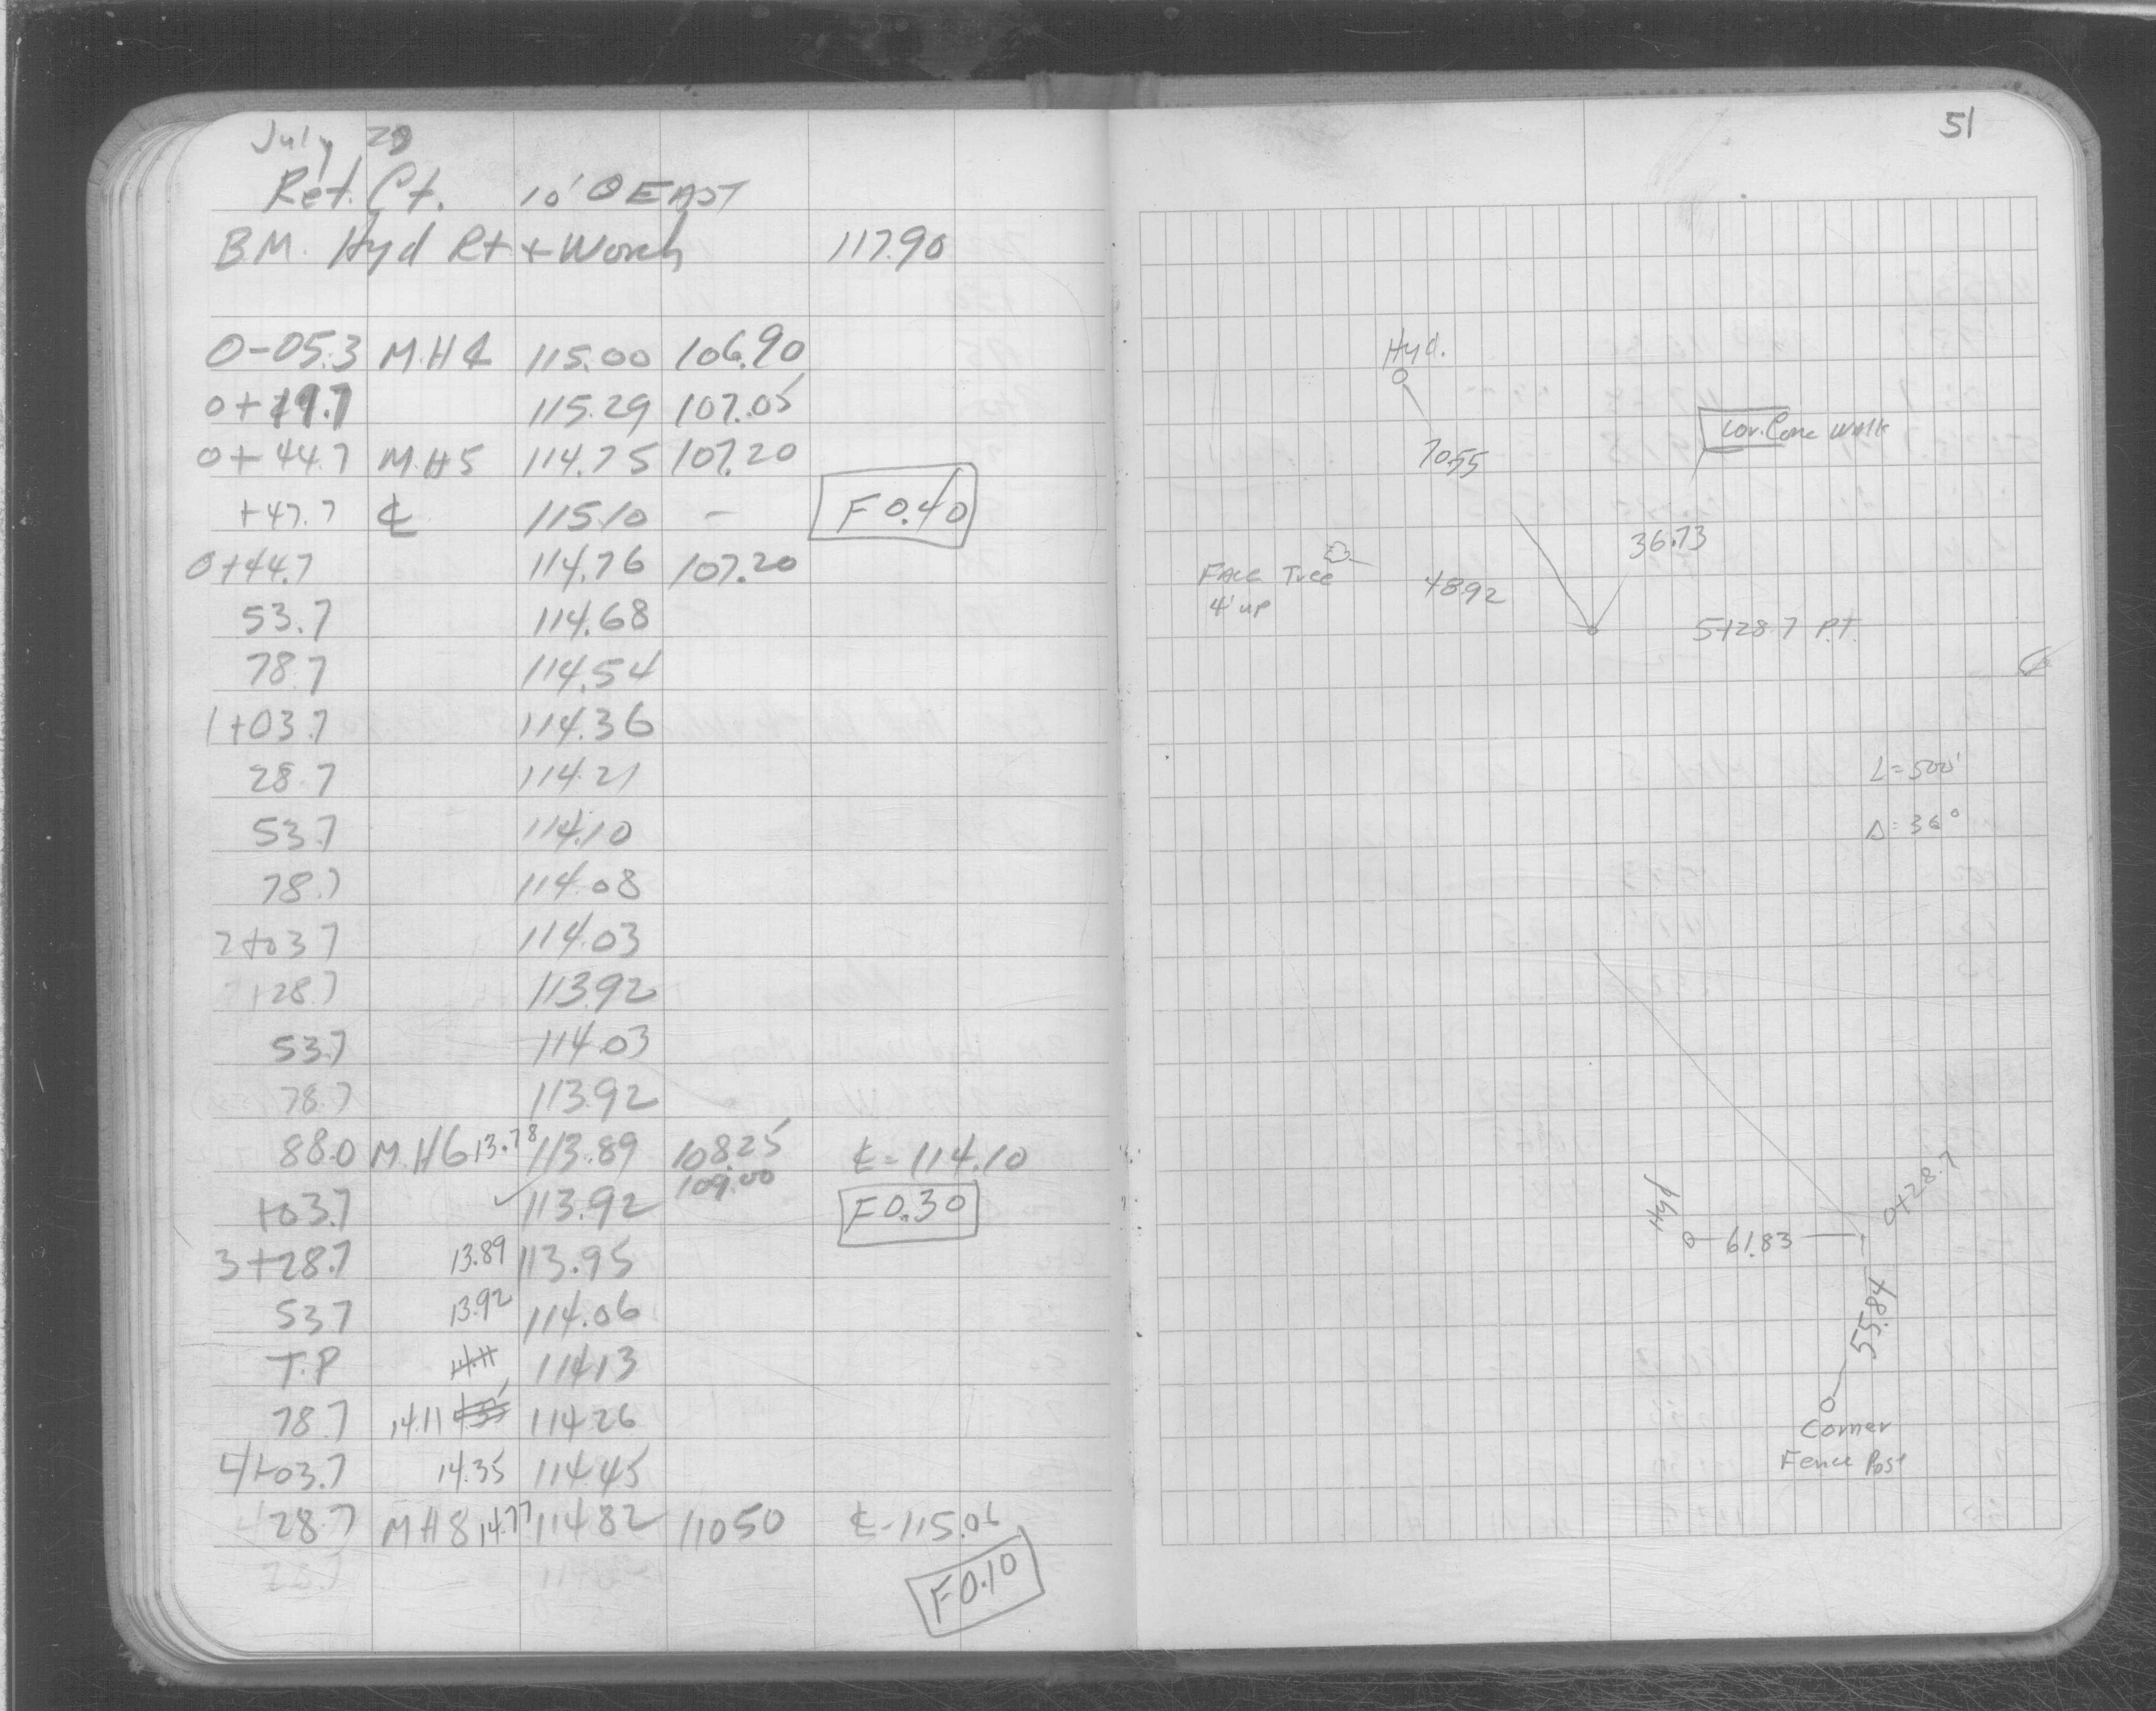 July 29
Ret. Ct. 10' O EAST
B.M. Hyd Rt + Worch 117.90
0-05.3 M.H ℄ 115.00 106.90
0+19.7 115.29 107.05
0+44.7 M.H 5 114.75 107.20
+47.7 ℄ 115.10 - F 0.40
0+44.7 114.76 107.20
53.7 114.68
78.7 114.54
1+03.7 114.36
28.7 114.21
53.7 114.10
78.7 114.08
2+03.7 114.03
2+28.7 113.92
53.7 114.03
78.7 113.92
88.0 M.H6 13.78 113.89 108.25 ℄ = 114.10
109.00
+03.7 ✓ 113.92 F 0.30
3+28.7 13.89 113.95
53.7 13.92 114.06
T.P 14.11 114.13
78.7 14.11 114.26
4+03.7 14.35 114.45
28.7 M H 8 14.77 114.82 110.50 ℄ - 115.06
28.7
F 0.10
51
Hyd.
70.55
Cor. Conc Walk
36.73
Face Tree
4' up
48.92
5+28.7 P.T.
L = 500'
Δ = 36°
Hyd
61.83
0+28.7
55.84
Corner
Fence Post